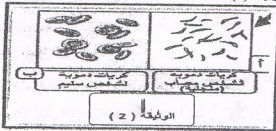 أ
كريات دموية
لشخص مصاب
(منجلية)
ب
كريات دموية
لشخص سليم
الوثيقة ( 2 )